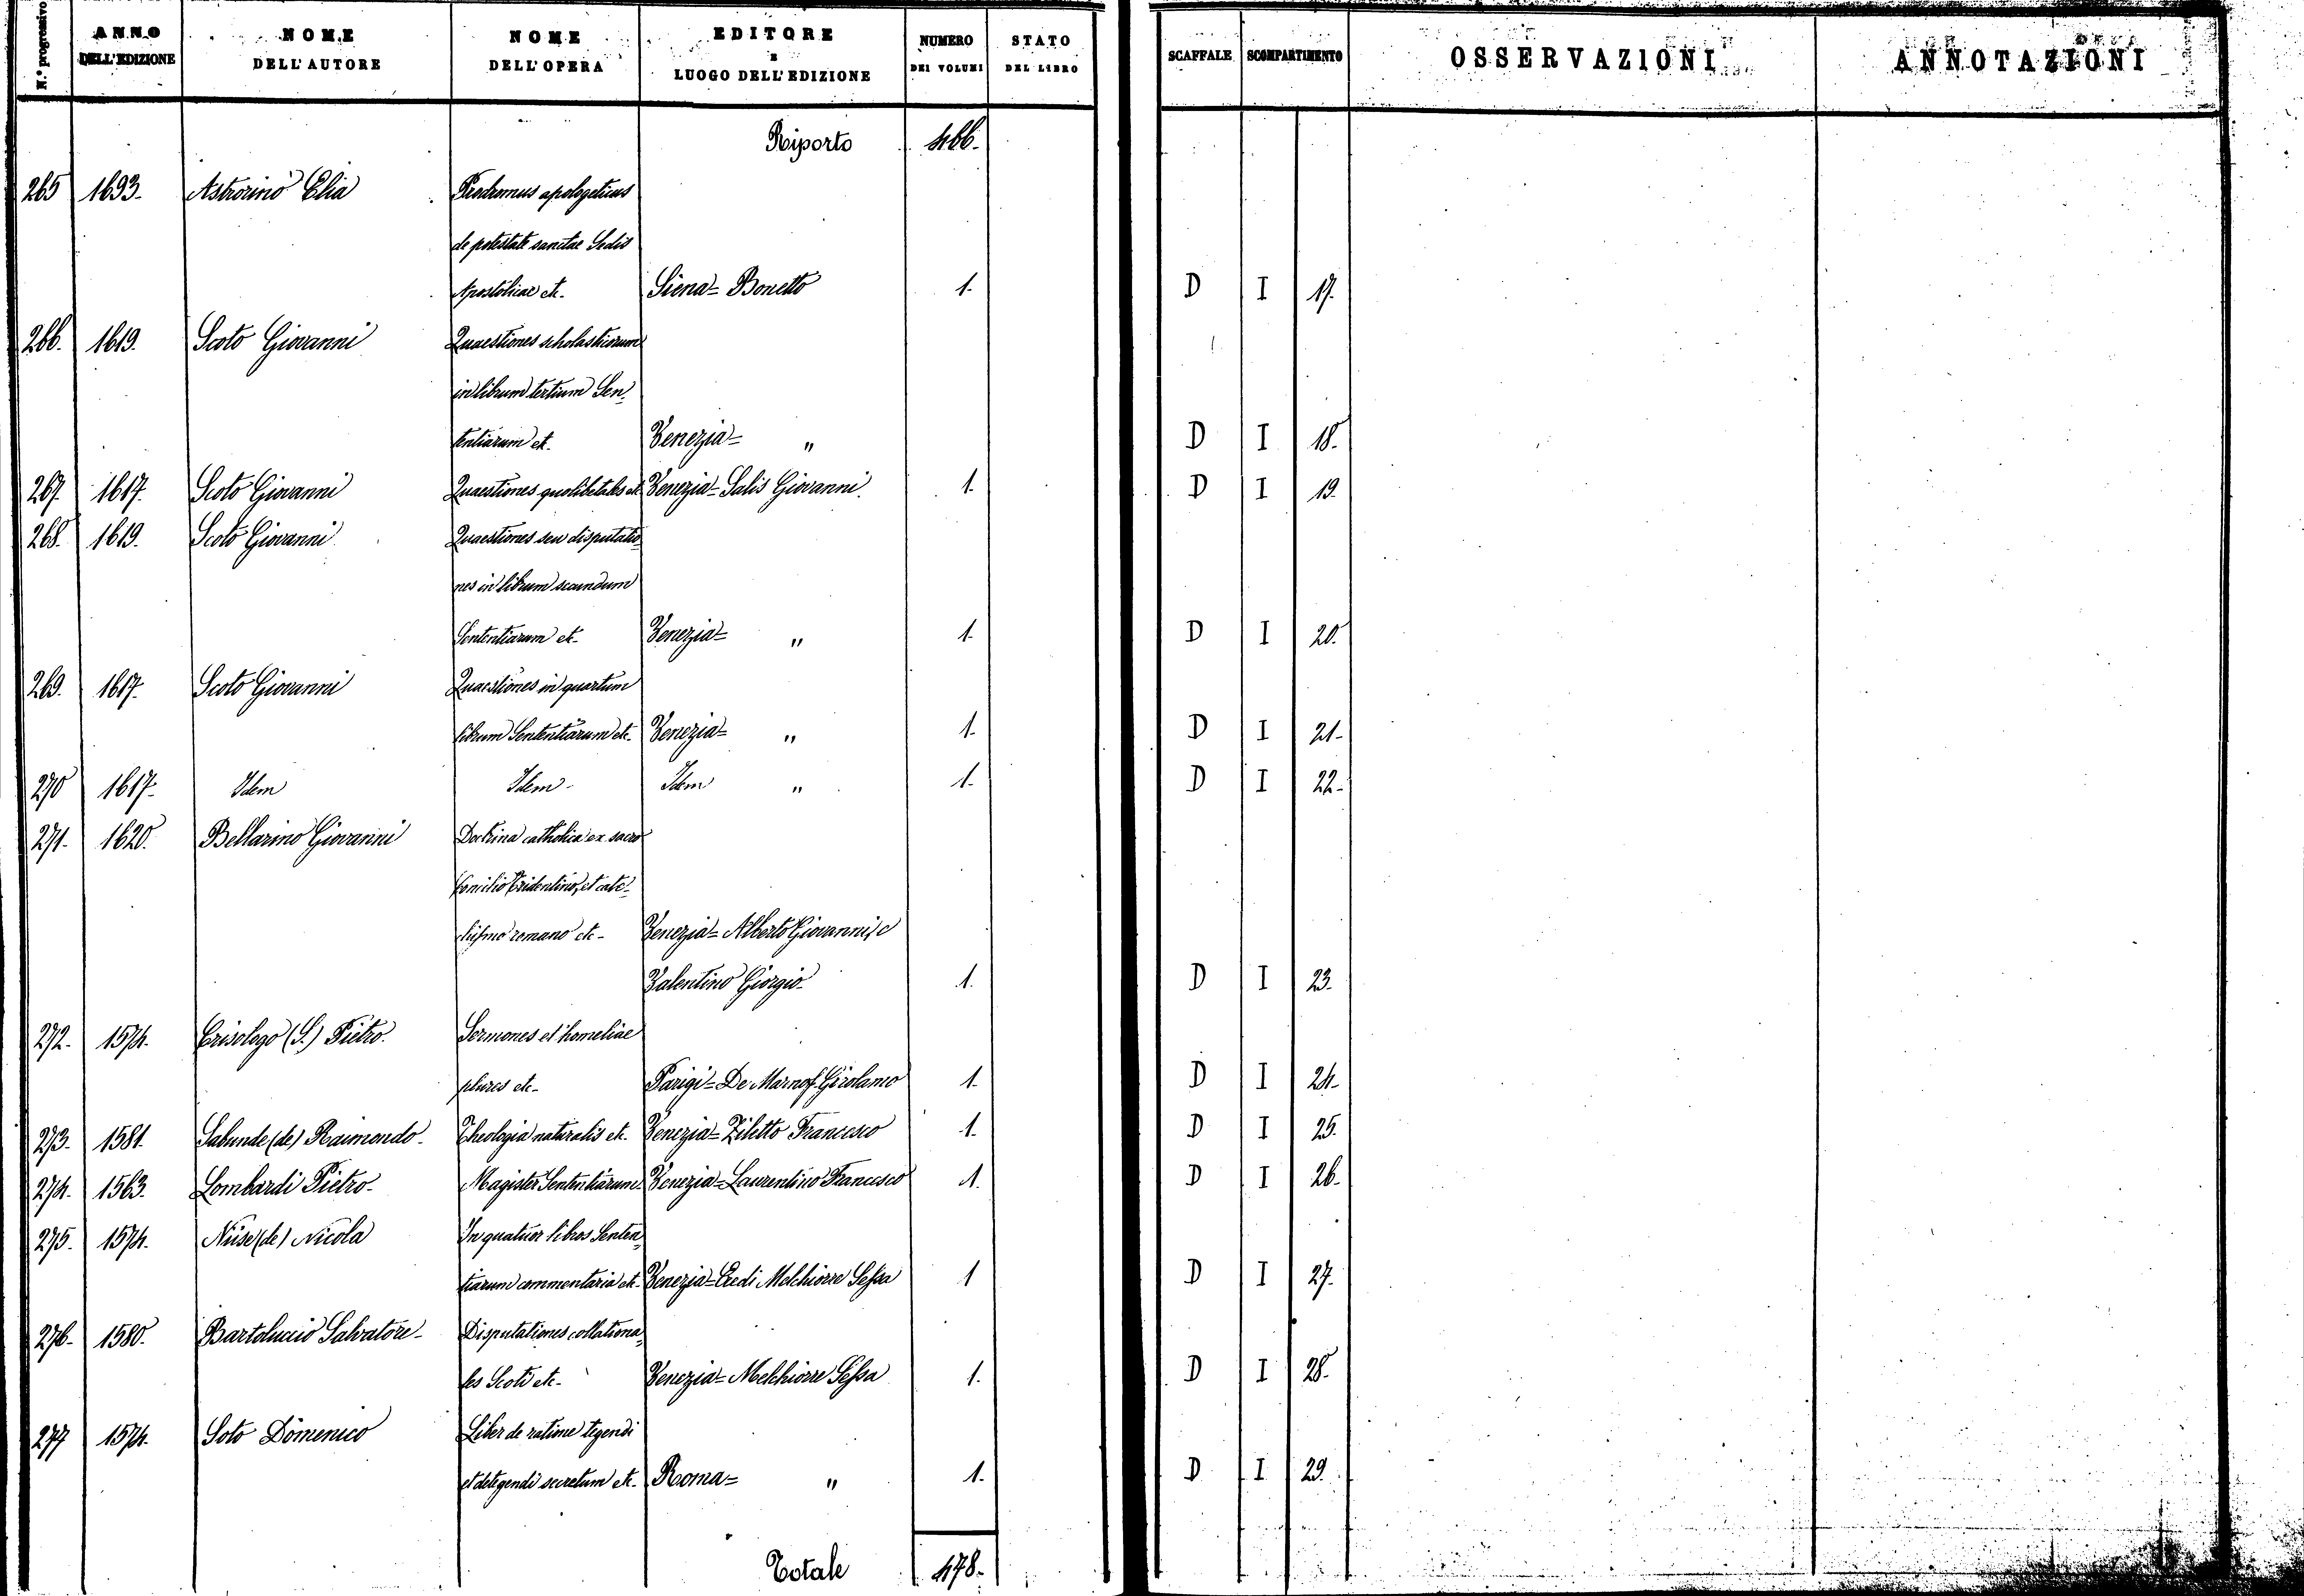 N.° progressivo | ANNO DELL'EDIZIONE | NOME DELL'AUTORE | NOME DELL'OPERA | EDITORE E LUOGO DELL'EDIZIONE | NUMERO DEI VOLUMI | STATO DEL LIBRO | SCAFFALE | SCOMPARTIMENTO | OSSERVAZIONI | ANNOTAZIONI
Riporto 466.
265 1693. Astrorino Elia Prodromus apologeticus
de potestate sanctae Sedis
Apostolicae etc. Siena = Bonetto 1. D I 17.
266. 1619. Scoto Giovanni Quaestiones scholasticorum
in librum tertium Sen-
tentiarum et. Venezia = " D I 18.
267. 1617. Scoto Giovanni Quaestiones quolibetales et. Venezia = Salis Giovanni. 1. D I 19.
268. 1619. Scoto Giovanni Quaestiones seu disputatio=
nes in librum secundum
Sententiarum et. Venezia = " 1. D I 20.
269. 1617. Scoto Giovanni Quaestiones in quartum
librum Sententiarum etc. Venezia = " 1. D I 21.
270 1617. Idem Idem Idem " 1. D I 22.
271. 1620. Bellarino Giovanni Doctrina catholica ex sacro
Concilio Tridentino, et cate=
chismo romano etc. Venezia = Alberto Giovanni, e
Valentino Giorgio 1. D I 23.
272. 1574. Crisologo (S.) Pietro. Sermones et homeliae
plures etc. Parigi = De Marnef Girolamo 1. D I 24.
273. 1581. Sabunde (de) Raimondo. Theologia naturalis et. Venezia = Ziletto Francesco 1. D I 25.
274. 1563. Lombardi Pietro. Magister Sententiarum Venezia = Laurentino Francesco 1. D I 26.
275. 1574. Niise (de) Nicola In quatuor libros Senten=
tiarum commentaria etc. Venezia = Eredi Melchiorre Sessa 1 D I 27.
276. 1580. Bartoluccio Salvatore. Disputationes collationa=
les Scoti etc. Venezia = Melchiorre Sessa 1. D I 28.
277 1574. Soto Domenico Liber de ratione tegendi
et detegendi secretum etc. Roma = " 1. D I 29.
Totale 478.